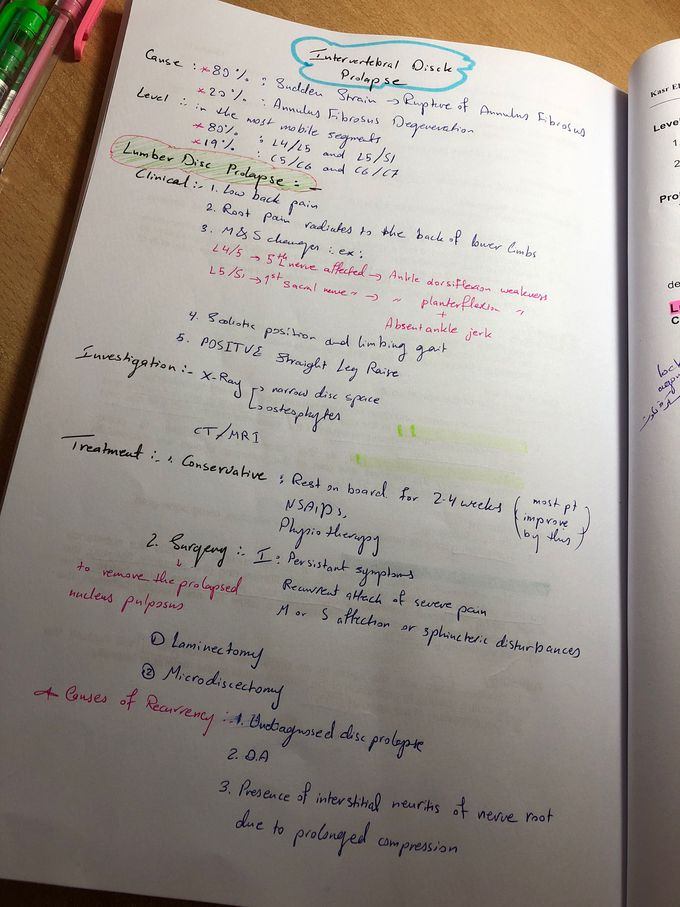 Intervertebral Disck
Prolapse
Cause : * 80% : Sudden Strain → Rupture of Annulus Fibrosus
* 20% : Annulus Fibrosus Degeneration
Level : in the most mobile segments
* 80% : L4/L5 and L5/S1
* 19% : C5/C6 and C6/C7
Lumber Disc Prolapse : -
Clinical :- 1. Low back pain
2. Root pain radiates to the back of lower limbs
3. M & S changes : ex:
L4/5 → 5th L nerve affected → Ankle dorsiflexion weakness
L5/S1 → 1st Sacral nerve " → " planterflexion "
+
Absent ankle jerk
4. Scoliotic position and limbing gait
5. POSITIVE Straight Leg Raise
Investigation :- X-Ray
↳ narrow disc space
↳ osteophytes
CT/MRI
Treatment :- 1. Conservative : Rest on board for 2-4 weeks (most pt
improve
by this)
NSAIDs,
Physiotherapy
2. Surgery :- I : Persistant symptoms
↓
to remove the prolapsed
nucleus pulposus
Recurrent attack of severe pain
M or S affection or sphincteric disturbances
① Laminectomy
② Microdiscectomy
* Causes of Recurrency : 1. Undiagnosed disc prolapse
2. OA
3. Presence of interstitial neuritis of nerve root
due to prolonged compression
Kasr El
Leve
1
2
Pro
de
L
C